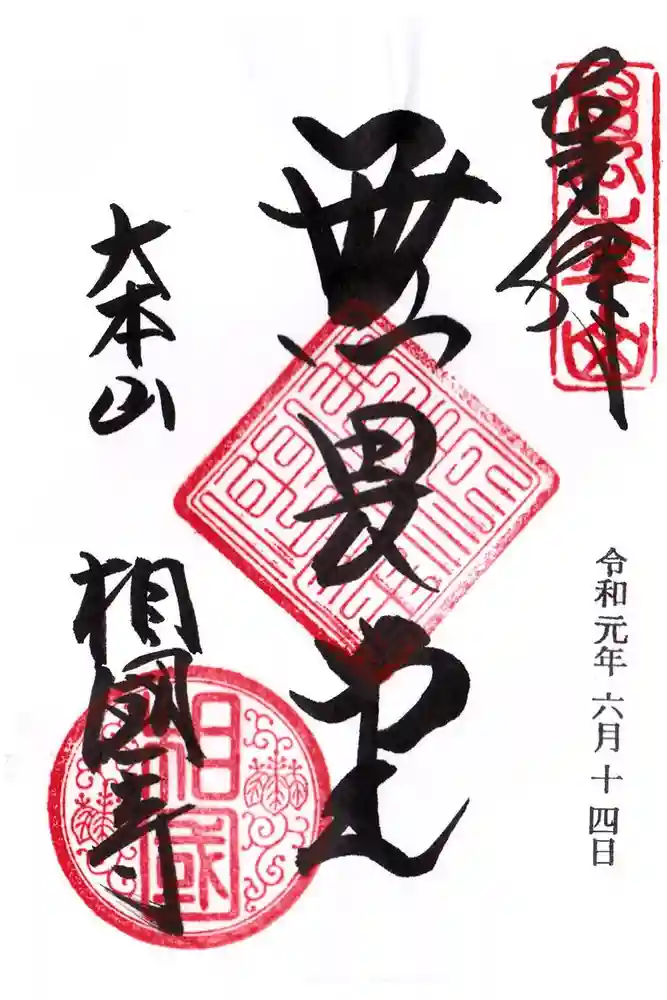 奉拝
令和元年六月十四日
無畏堂
大本山
相國寺
相國